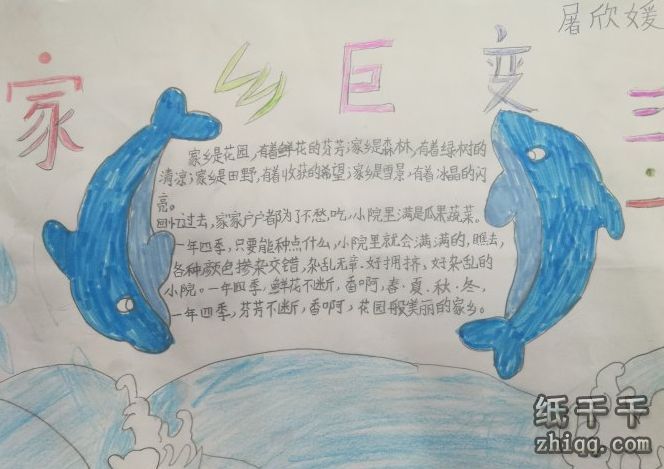 屠欣媛
家乡巨变
家乡是花园，有着鲜花的芬芳；家乡是森林，有着绿树的
清凉；家乡是田野，有着收获的希望；家乡是雪景，有着冰晶的闪
亮。
回忆过去，家家户户都为了不愁，吃，小院里满是瓜果蔬菜。
一年四季，只要能种点什么，小院里就会满满的，瞧去，
各种颜色掺杂交错，杂乱无章、好拥挤、好杂乱的
小院。一年四季，鲜花不断，香啊，春·夏、秋、冬，
一年四季，芬芳不断，香啊，花园般美丽的家乡。
纸千千
zhiqq.com